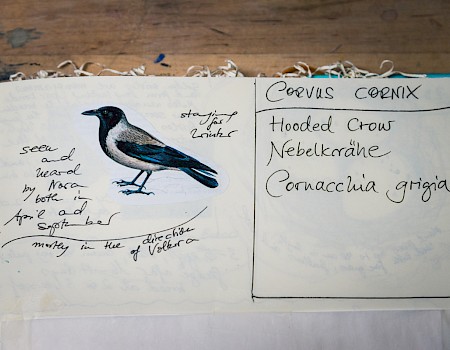 seen
and
heard
by Nora
both in
April and
September
mostly in the direction
of Volkera
staying
for
Winter
CORVUS CORNIX
Hooded Crow
Nebelkrähe
Cornacchia grigia